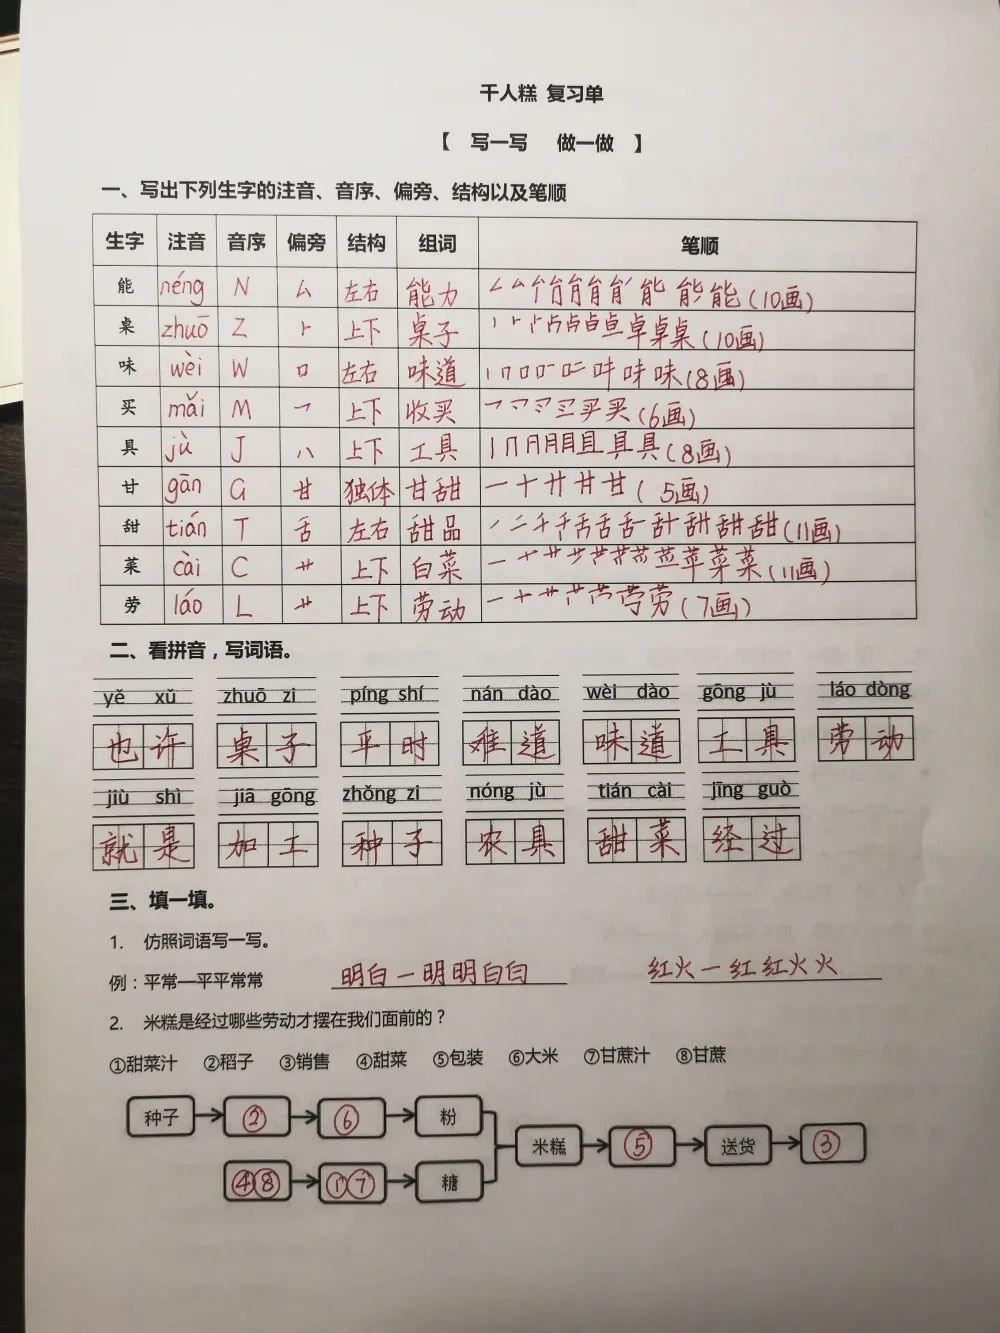 千人糕 复习单
【 写一写 做一做 】
一、写出下列生字的注音、音序、偏旁、结构以及笔顺
生字 注音 音序 偏旁 结构 组词 笔顺
能 néng N 厶 左右 能力 (10画)
桌 zhuō Z ⺊ 上下 桌子 (10画)
味 wèi W 口 左右 味道 (8画)
买 mǎi M 乛 上下 收买 (6画)
具 jù J 八 上下 工具 (8画)
甘 gān G 甘 独体 甘甜 (5画)
甜 tián T 舌 左右 甜品 (11画)
菜 cài C 艹 上下 白菜 (11画)
劳 láo L 艹 上下 劳动 (7画)
二、看拼音，写词语。
yě xǔ zhuō zi píng shí nán dào wèi dào gōng jù láo dòng
也许 桌子 平时 难道 味道 工具 劳动
jiù shì jiā gōng zhǒng zi nóng jù tián cài jīng guò
就是 加工 种子 农具 甜菜 经过
三、填一填。
1. 仿照词语写一写。
例：平常—平平常常 明白—明明白白 红火—红红火火
2. 米糕是经过哪些劳动才摆在我们面前的？
①甜菜汁 ②稻子 ③销售 ④甜菜 ⑤包装 ⑥大米 ⑦甘蔗汁 ⑧甘蔗
种子 ② ⑥ 粉
米糕 ⑤ 送货 ③
④⑧ ①⑦ 糖